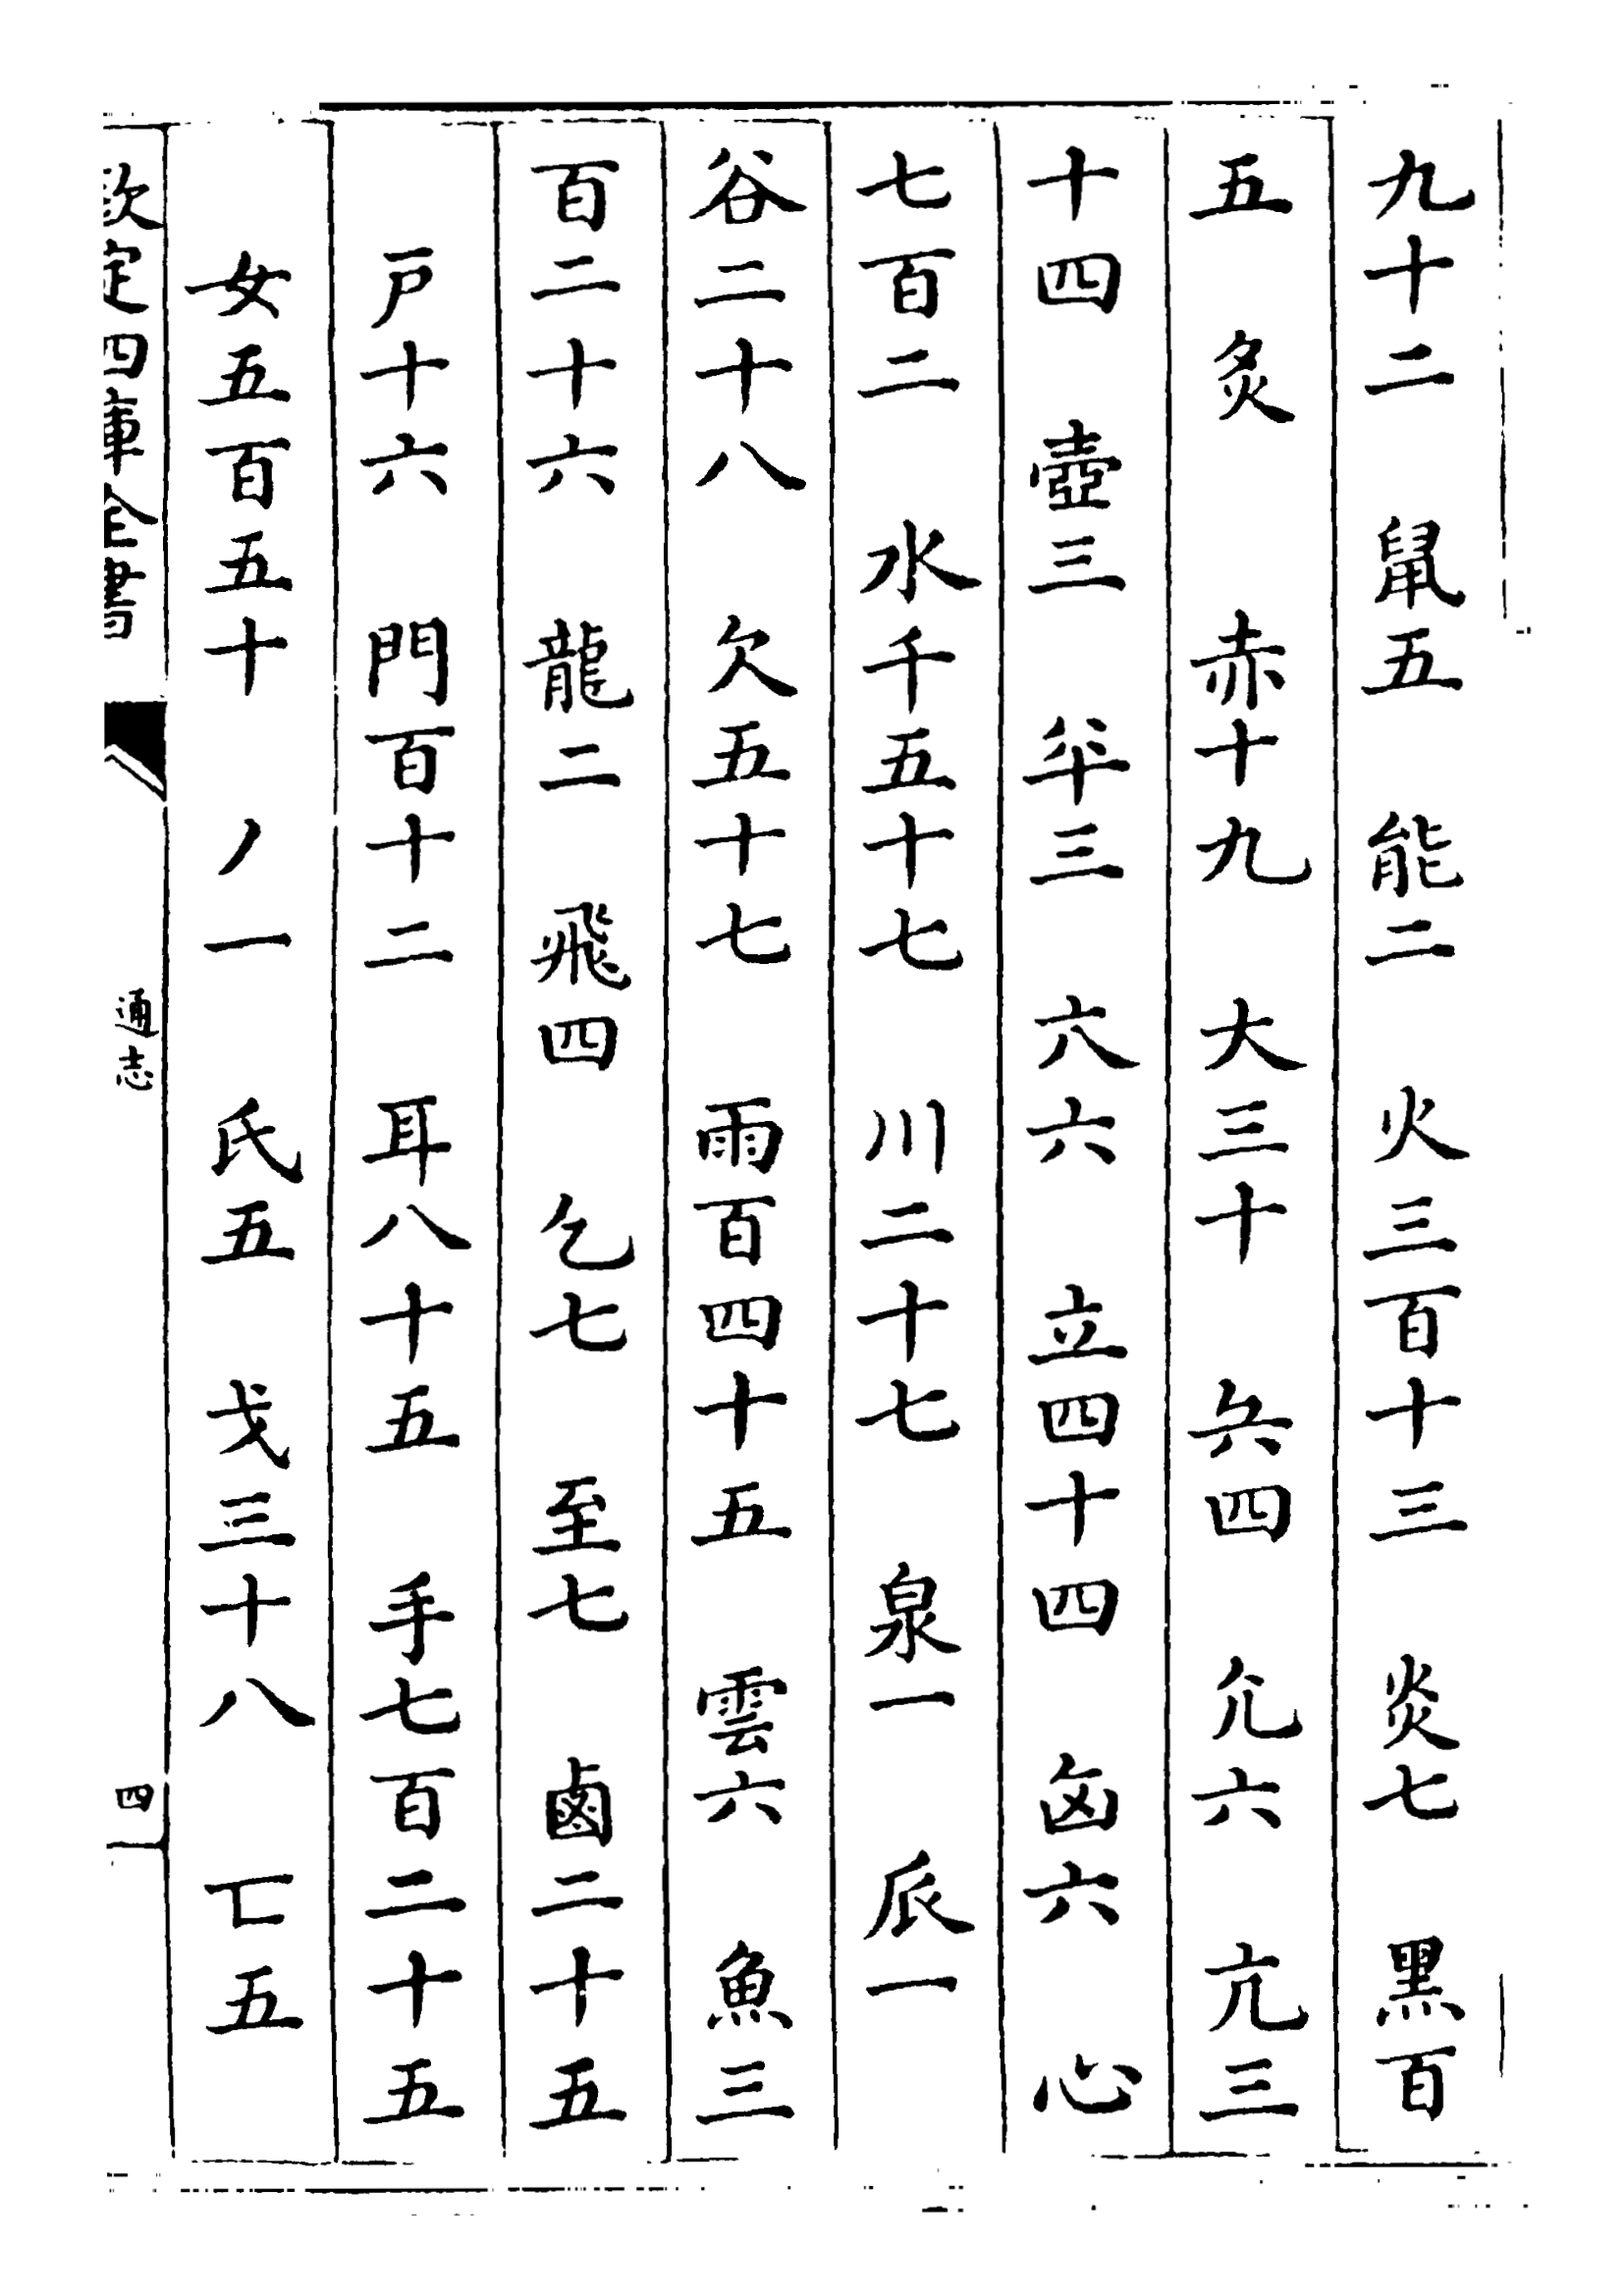 九十二 鼠五 能二 火三百十三 炎七 黒百
五 炙 赤十九 大三十 四 六 亢三
十四 壺三 三 六六 立四十四 囟六 心
七百二 水千五十七 川二十七 泉一 𠂢一
谷二十八 欠五十七 雨百四十五 雲六 魚三
百二十六 龍二 飛四 乞七 至七 鹵二十五
戸十六 門百十二 耳八十五 手七百二十五
女五百五十 丿一 氏五 戈三十八 亡五
欽定四庫全書
通志
四